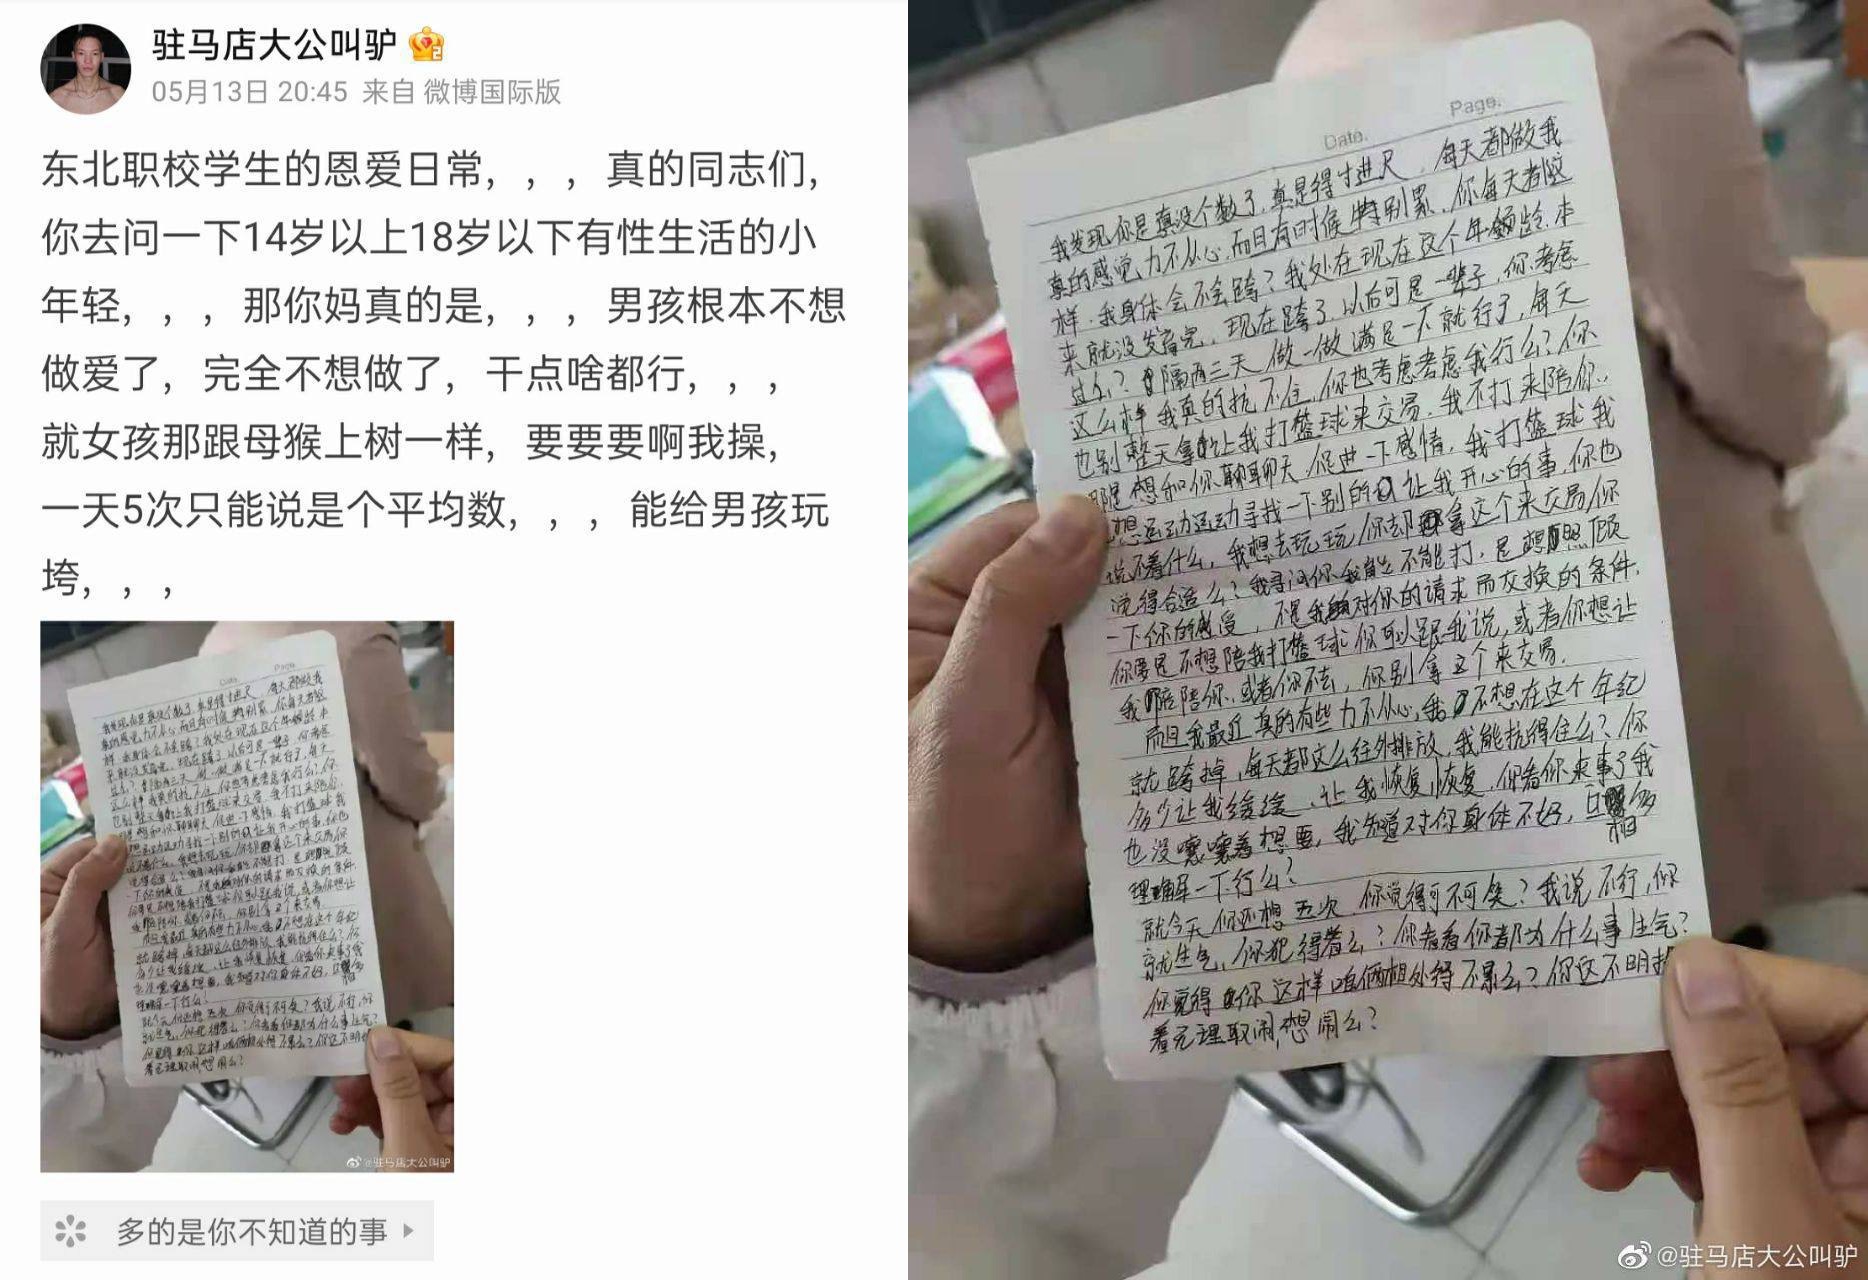 驻马店大公叫驴
05月13日 20:45 来自 微博国际版
东北职校学生的恩爱日常，，，真的同志们，
你去问一下14岁以上18岁以下有性生活的小
年轻，，，那你妈真的是，，，男孩根本不想
做爱了，完全不想做了，干点啥都行，，，
就女孩那跟母猴上树一样，要要要啊我操，
一天5次只能说是个平均数，，，能给男孩玩
垮，，，
@驻马店大公叫驴
多的是你不知道的事
Date. Page.
我发现你是真没个数了，真是得寸进尺，每天都做我
真的感觉力不从心，而且有时候特别累，你每天都这
样，我身体会不会跨？我处在现在这个年龄，本
来就没发育完，现在跨了，以后可是一辈子，你考虑
过么？隔两三天做一做满足一下就行了，每天
这么样我真的抗不住，你也考虑考虑我行么？你
也别整天拿让我打篮球来交易，我不打来陪你，
想和你聊聊天促进一下感情，我打篮球我
想运动运动寻找一下别的让我开心的事，你也
说不着什么，我想去玩玩你却拿这个来交易，你
觉得合适么？我寻问你我能不能打，是想照顾
一下你的感受，不是我对你的请求而交换的条件，
你要是不想陪我打篮球你可以跟我说，或者你想让
我陪陪你，或者你不去，你别拿这个来交易，
而且我最近真的有些力不从心，我不想在这个年纪
就跨掉，每天都这么往外排放，我能抗得住么？你
多少让我缓缓，让我恢复恢复，你看你来事了我
也没嚷嚷着想要，我知道对你身体不好，互相多
理解一下行么？
就今天你还想五次，你觉得可不可笑？我说不行，你
就生气，你犯得着么？你看看你都为什么事生气？
你觉得你这样咱俩相处得不累么？你这不明摆
着无理取闹，想闹么？
@驻马店大公叫驴